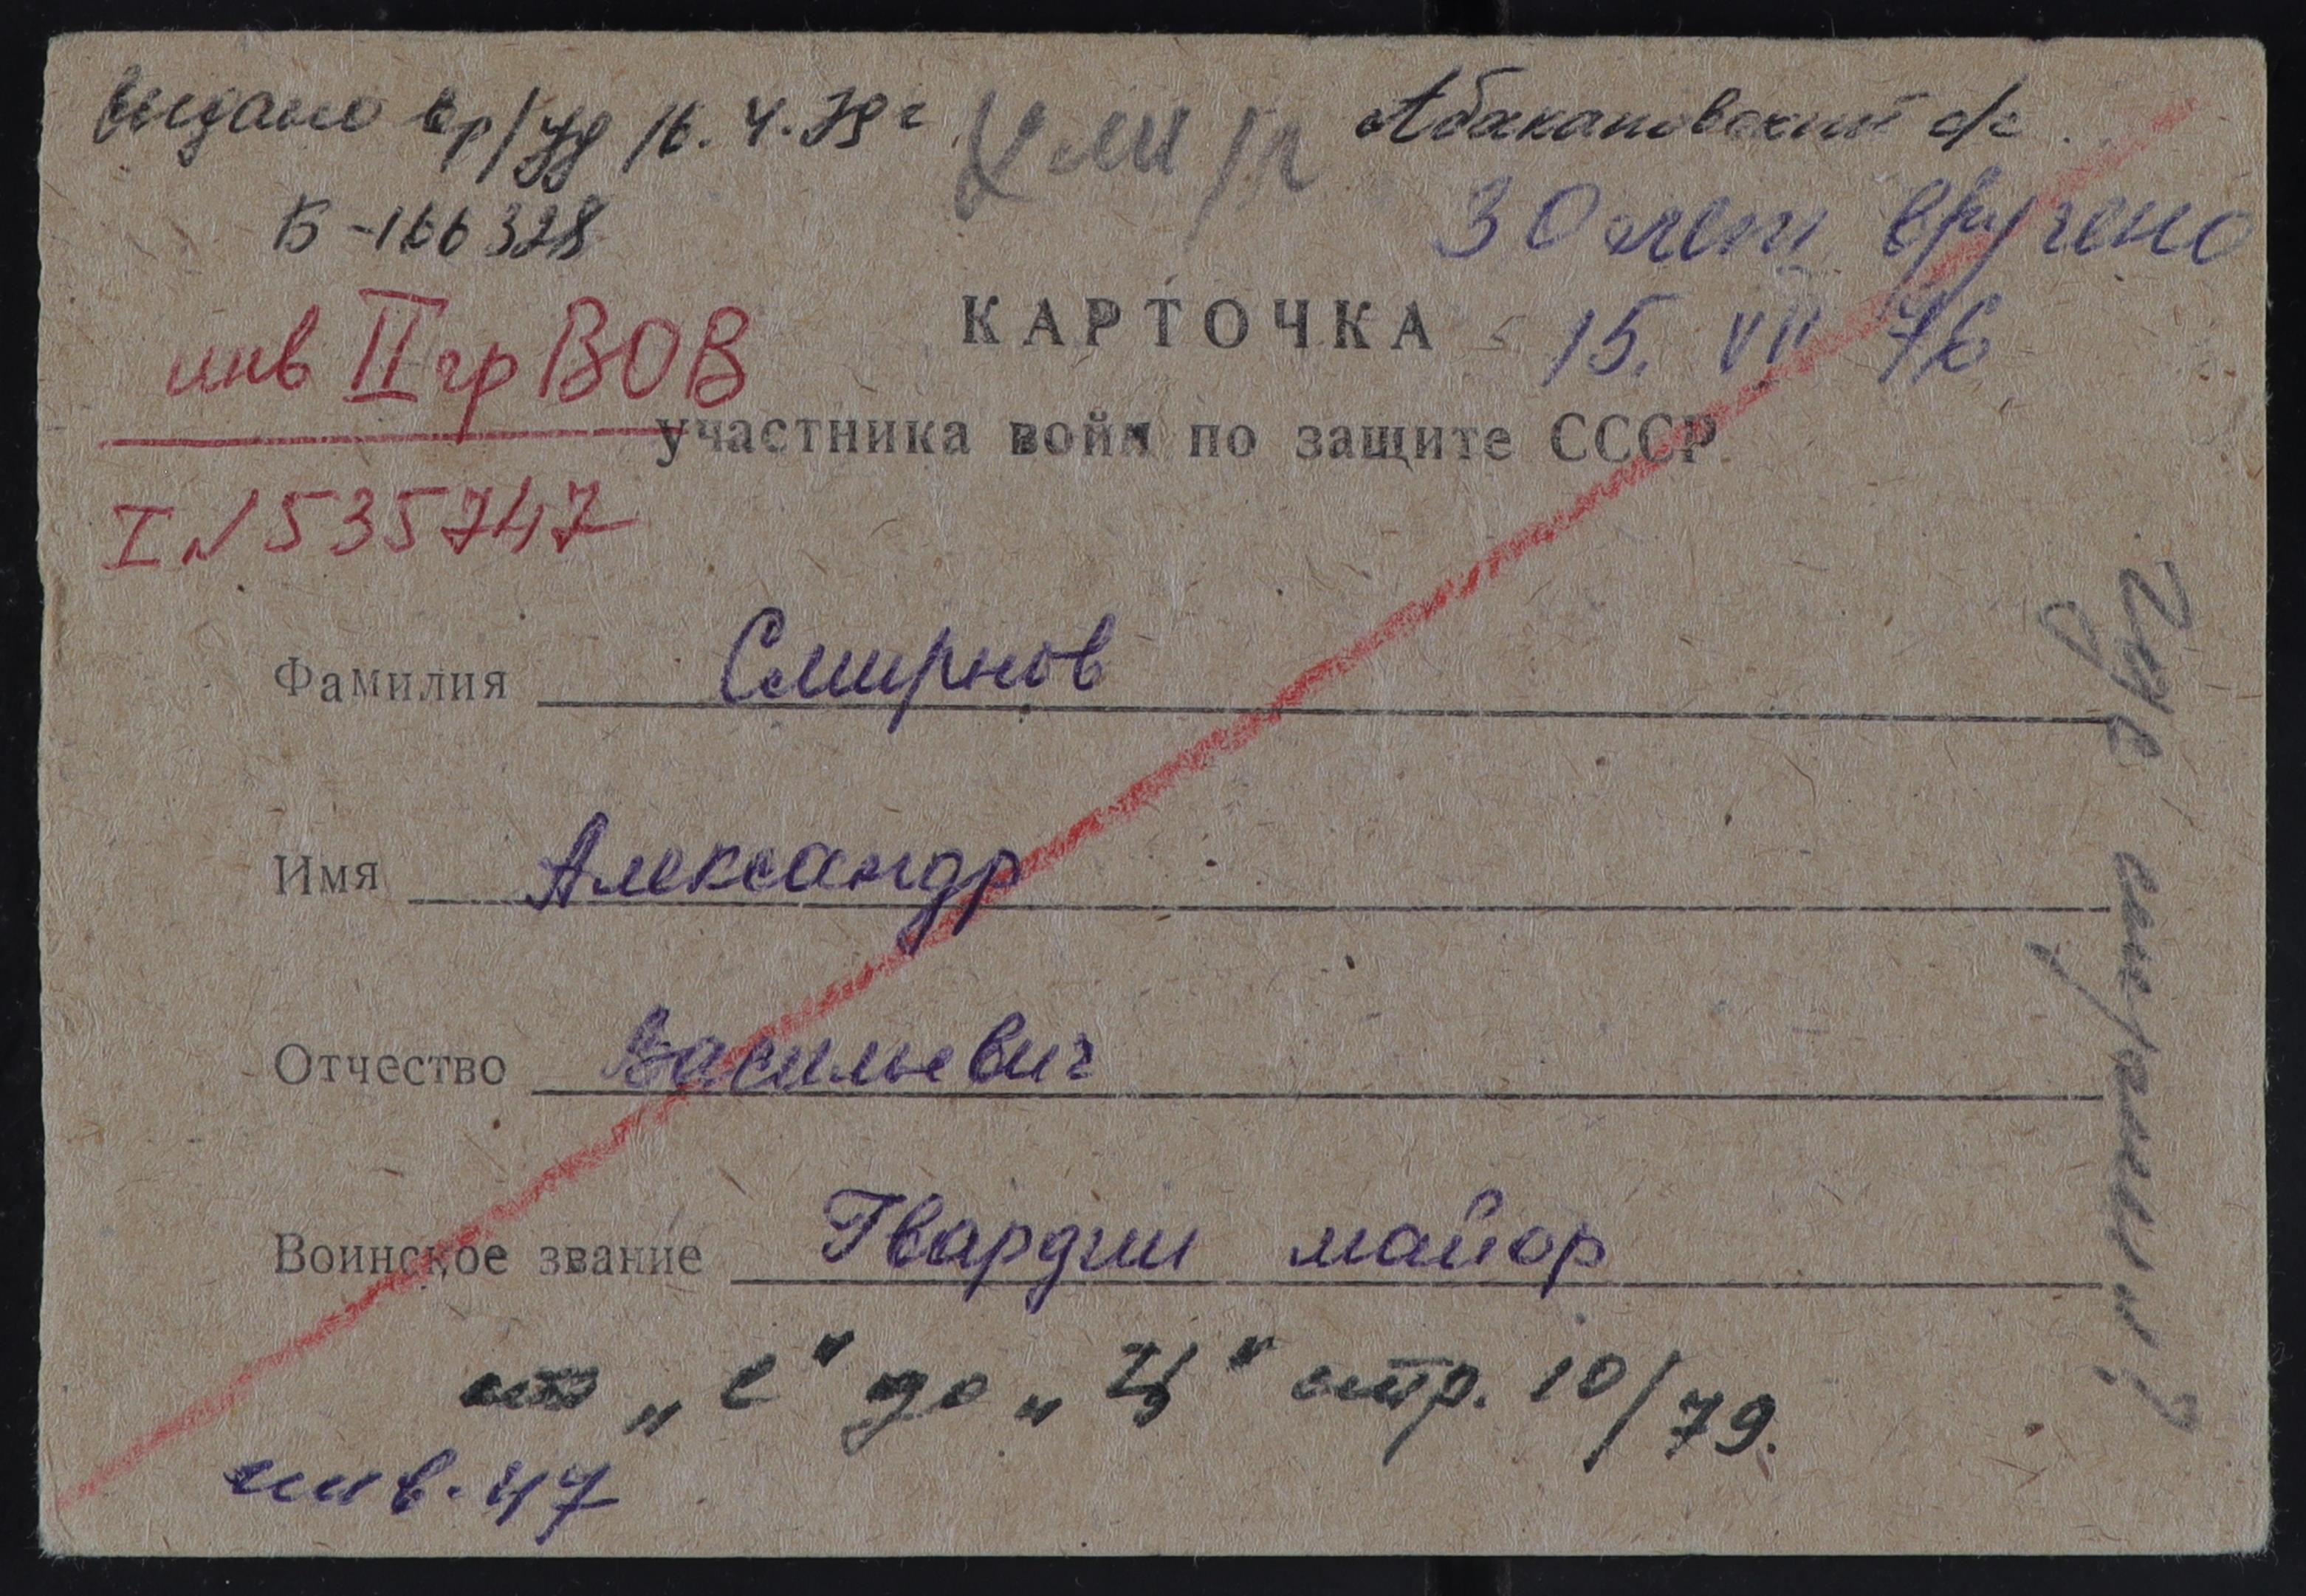 выдано вр/уд 16.4.79 г
Б-166328
Абакановский с/с
30 лет вручено
15. VII 76
инв II гр ВОВ
КАРТОЧКА
участника войн по защите СССР
I N 535747
Фамилия Смирнов
Имя Александр
Отчество Васильевич
Воинское звание Гвардии майор
от „С“ до „Ц“ стр. 10/79.
инв. 47